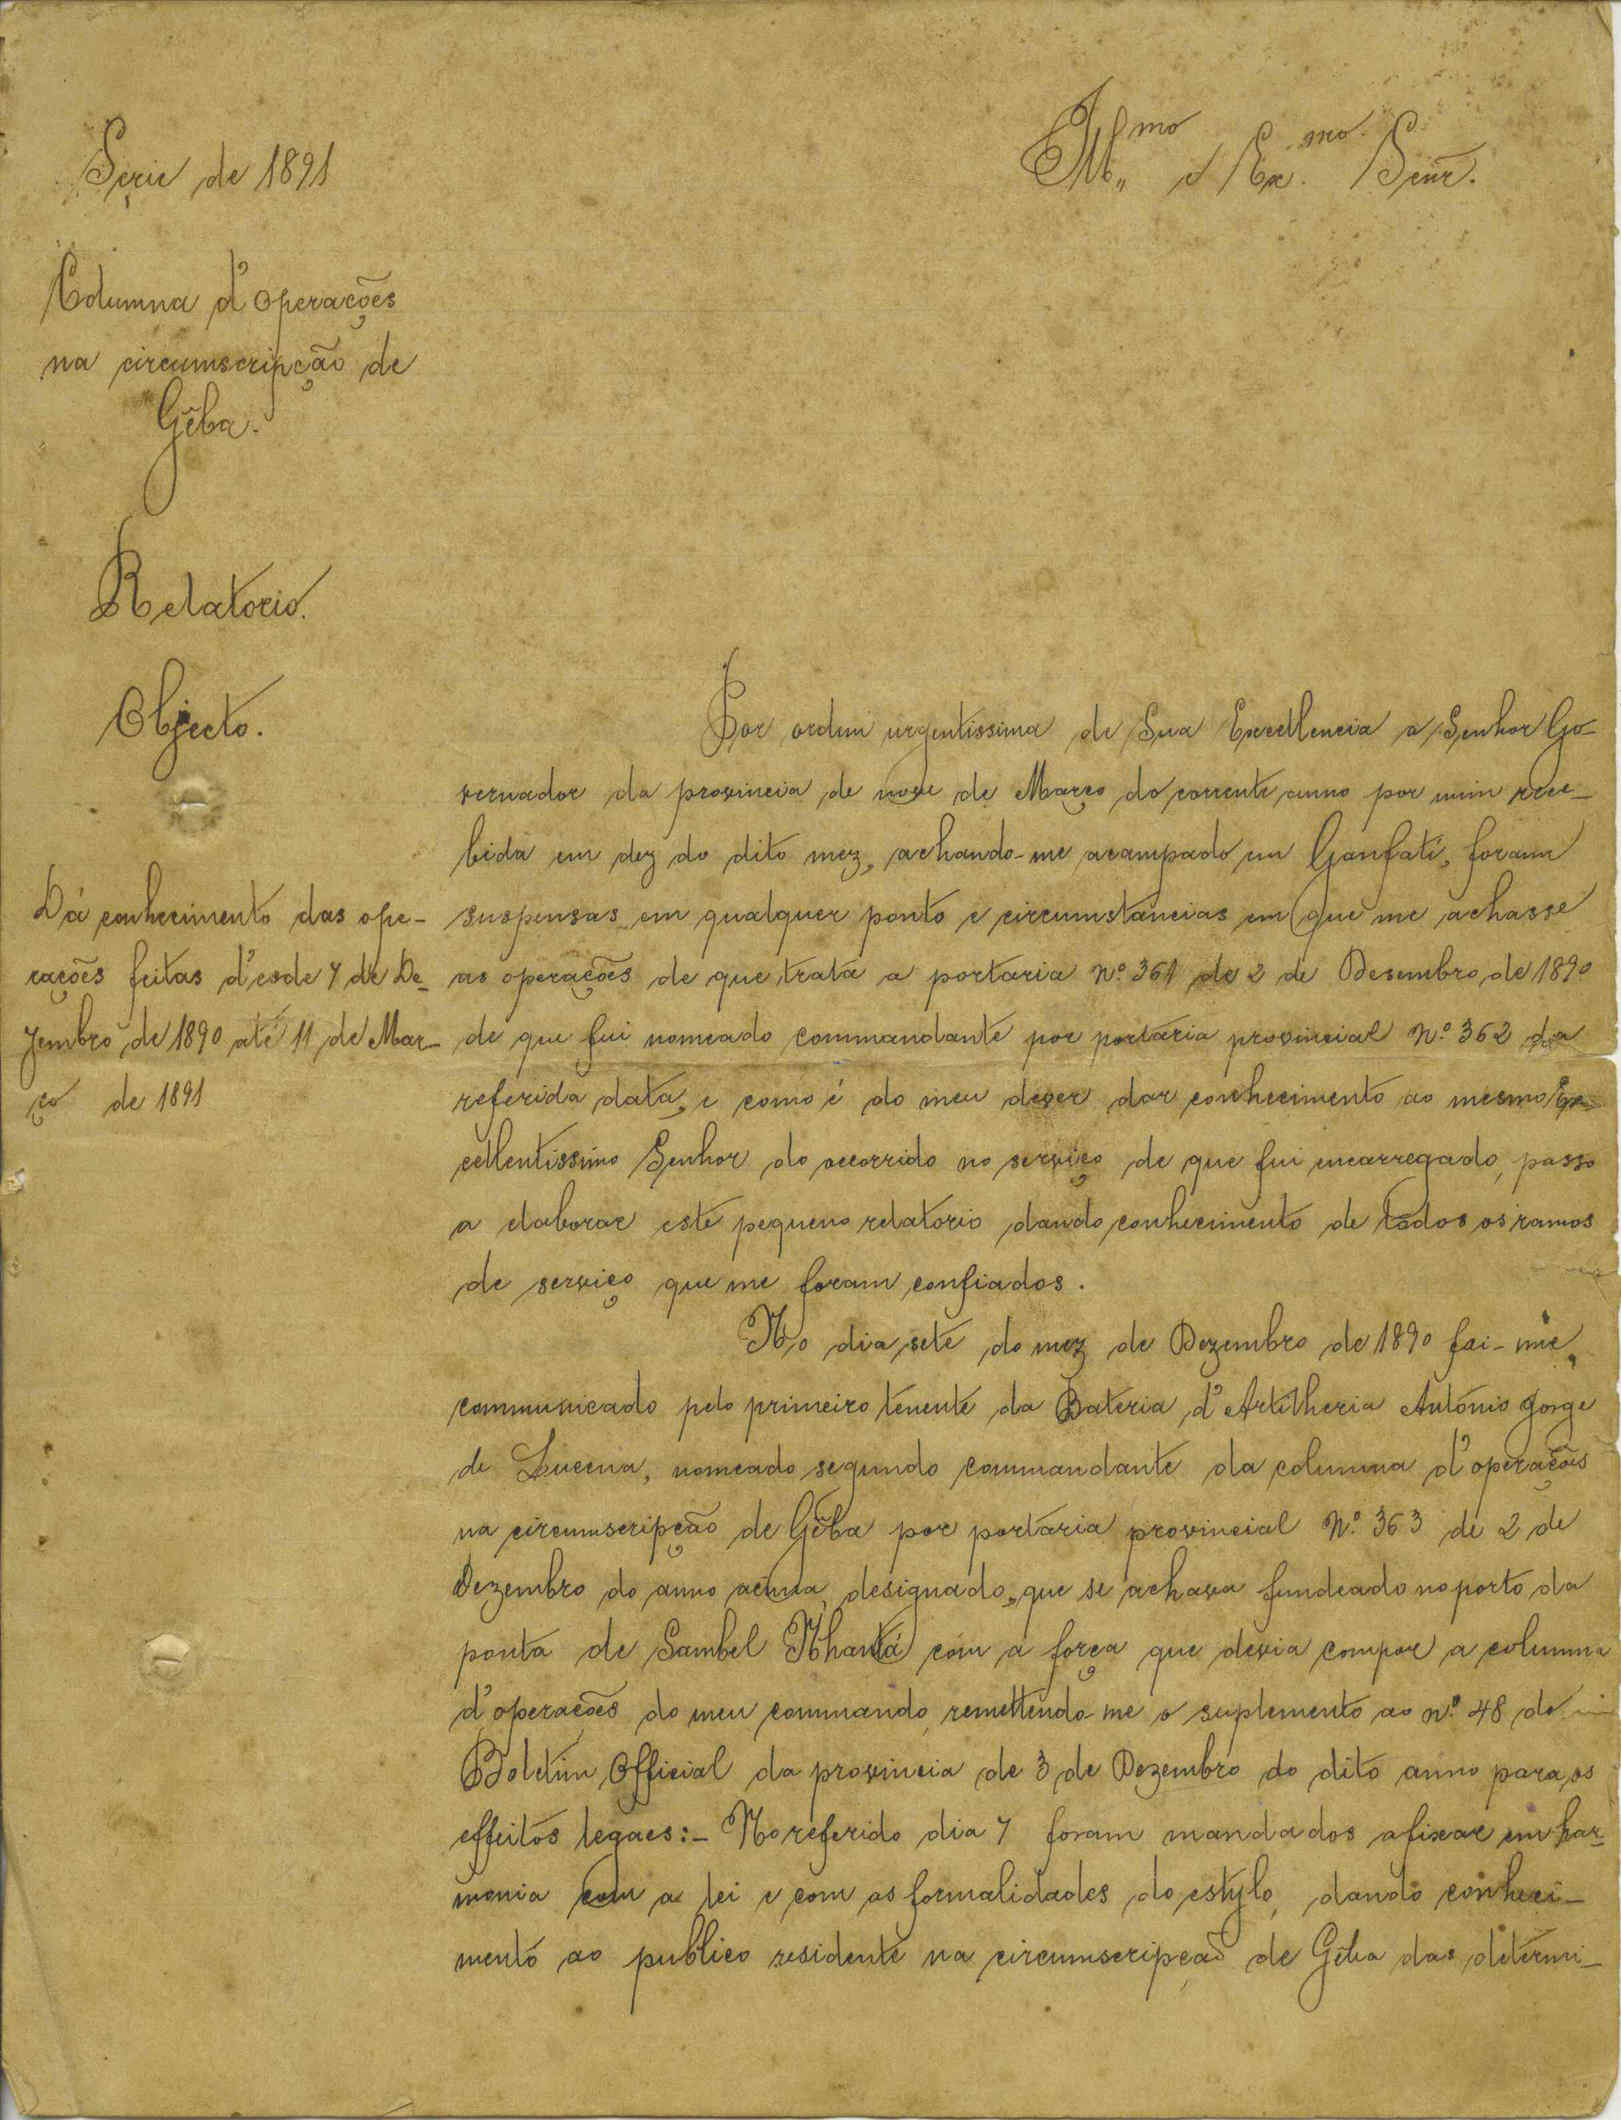 Serie de 1891
Ill.mo e Ex.mo Senr.
Columna d'operações
na circumscripção de
Gêba.
Relatorio.
Objecto.
Dá conhecimento das ope-
rações feitas d'esde 7 de De-
zembro de 1890 até 11 de Mar-
ço de 1891
Por ordem urgentissima de Sua Excellencia o Senhor Go-
vernador da provincia de nove de Março do corrente anno por mim rece-
bida em dez do dito mez, achando-me acampado em Ganfati, foram
suspensas em qualquer ponto e circumstancias em que me achasse
as operações de que trata a portaria Nº 361 de 2 de Desembro de 1890
de que fui nomeado commandante por portaria provincial Nº 362 da
referida data, e como é do meu dever dar conhecimento ao mesmo Ex-
cellentissimo Senhor do occorrido no serviço de que fui encarregado, passo
a elaborar este pequeno relatorio dando conhecimento de todos os ramos
de serviço que me foram confiados.
No dia sete do mez de Dezembro de 1890 foi-me
communicado pelo primeiro tenente da Bateria d'Artilheria António Jorge
de Lucena, nomeado segundo commandante da columna d'operações
na circumscripção de Gêba por portaria provincial Nº 363 de 2 de
Dezembro do anno acima designado, que se achava fundeado no porto da
ponta de Sambel Nhantá com a força que devia compor a columna
d'operações do meu commando, remettendo-me o suplemento ao nº 48 do
Boletim Official da provincia de 3 de Dezembro do dito anno para os
effeitos legaes:- No referido dia 7 foram mandados afixar em har-
monia com a lei e com as formalidades do estylo, dando conheci-
mento ao publico residente na circumscripção de Gêba das determi-